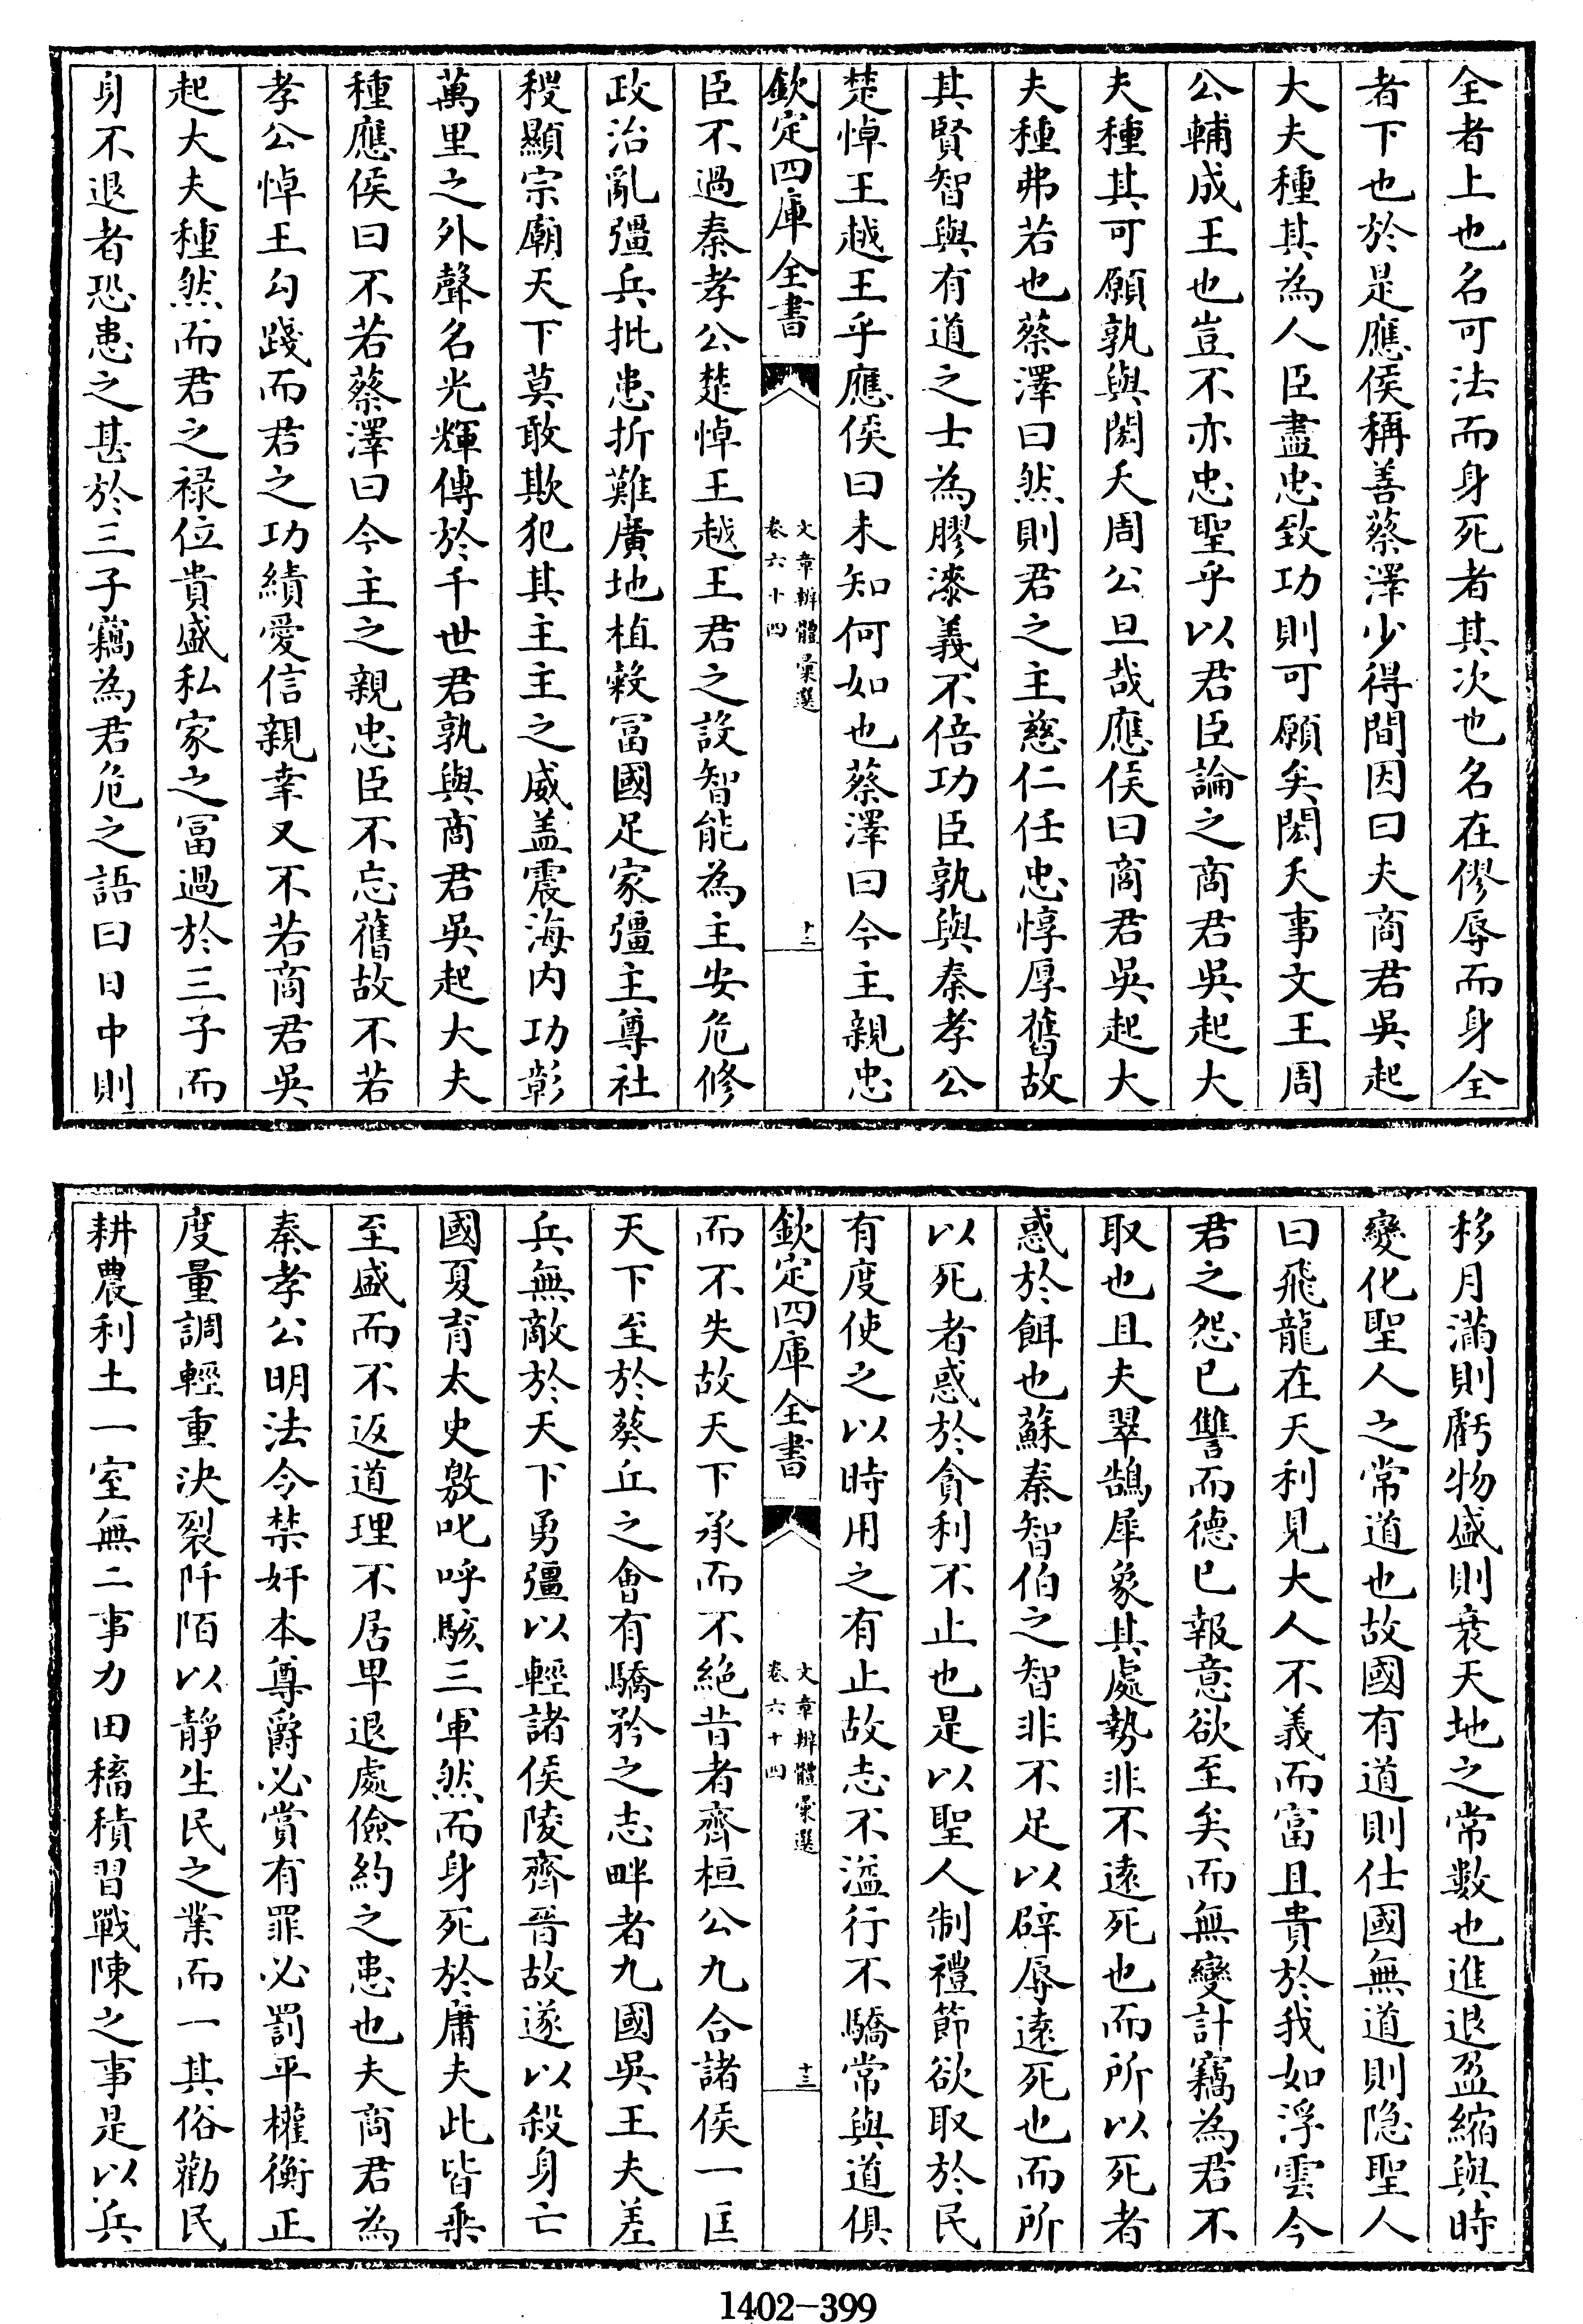 全者上也名可法而身死者其次也名在僇辱而身全
者下也於是應侯稱善蔡澤少得間因曰夫商君吳起
大夫種其為人臣盡忠致功則可願矣閎夭事文王周
公輔成王也豈不亦忠聖乎以君臣論之商君吳起大
夫種其可願孰與閎夭周公旦哉應侯曰商君吳起大
夫種弗若也蔡澤曰然則君之主慈仁任忠惇厚舊故
其賢智與有道之士為膠漆義不倍功臣孰與秦孝公
楚悼王越王乎應侯曰未知何如也蔡澤曰今主親忠
欽定四庫全書
文章辨體彙選
卷六十四
十二
臣不過秦孝公楚悼王越王君之設智能為主安危修
政治亂彊兵批患折難廣地植穀冨國足家彊主尊社
稷顯宗廟天下莫敢欺犯其主主之威盖震海内功彰
萬里之外聲名光輝傳於千世君孰與商君吳起大夫
種應侯曰不若蔡澤曰今主之親忠臣不忘舊故不若
孝公悼王勾踐而君之功績愛信親幸又不若商君吳
起大夫種然而君之禄位貴盛私家之冨過於三子而
身不退者恐患之甚於三子竊為君危之語曰日中則
移月滿則虧物盛則衰天地之常數也進退盈縮與時
變化聖人之常道也故國有道則仕國無道則隐聖人
曰飛龍在天利見大人不義而富且貴於我如浮雲今
君之怨已讐而德已報意欲至矣而無變計竊為君不
取也且夫翠鵠犀象其處勢非不遠死也而所以死者
惑於餌也蘇秦智伯之智非不足以辟辱遠死也而所
以死者惑於貪利不止也是以聖人制禮節欲取於民
有度使之以時用之有止故志不溢行不驕常與道俱
欽定四庫全書
文章辨體彙選
卷六十四
十三
而不失故天下承而不絶昔者齊桓公九合諸侯一匡
天下至於葵丘之會有驕矜之志畔者九國吳王夫差
兵無敵於天下勇彊以輕諸侯陵齊晉故遂以殺身亡
國夏育太史噭叱呼駭三軍然而身死於庸夫此皆乘
至盛而不返道理不居卑退處儉約之患也夫商君為
秦孝公明法令禁奸本尊爵必賞有罪必罰平權衡正
度量調輕重決裂阡陌以靜生民之業而一其俗勸民
耕農利土一室無二事力田穡積習戰陳之事是以兵
1402-399